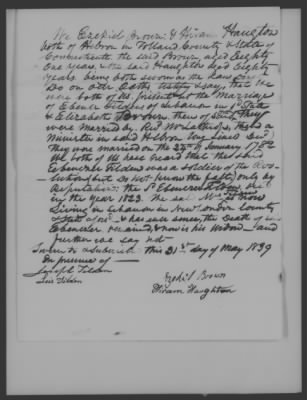 We Ezekiel Brown & Hiram Haughton
both of Hebron in Tolland County & State of
Connecticut the said Brown aged Eighty
One years & the said Haughton aged Eighty
years being both sworn as the Law
Do on our Oath testify & say, that we
were both of us present at the Marriage
of Ebenezer Tilden of Lebanon in sd State
& Elizabeth Brown then of they
were married by Rev Mr Lathrop, the
Minister in said Hebron
They were married on the 27th of January 1782
We both of us have heard that the said
Ebenezer Tilden was a Soldier of the Rev-
but do not know the fact, only by
Reputation: the sd Ebenezer Tilden died
in the year 1823. The sd Mrs is now
Living in Lebanon in New London County
& State of & has ever since the Death of sd
Ebenezer remained & now is his Widow and
further we say not
Sworn to & Subscribed this 21st day of May 1839
In presence of
Joseph Tilden
Tilden
Ezekiel Brown
Hiram Haughton